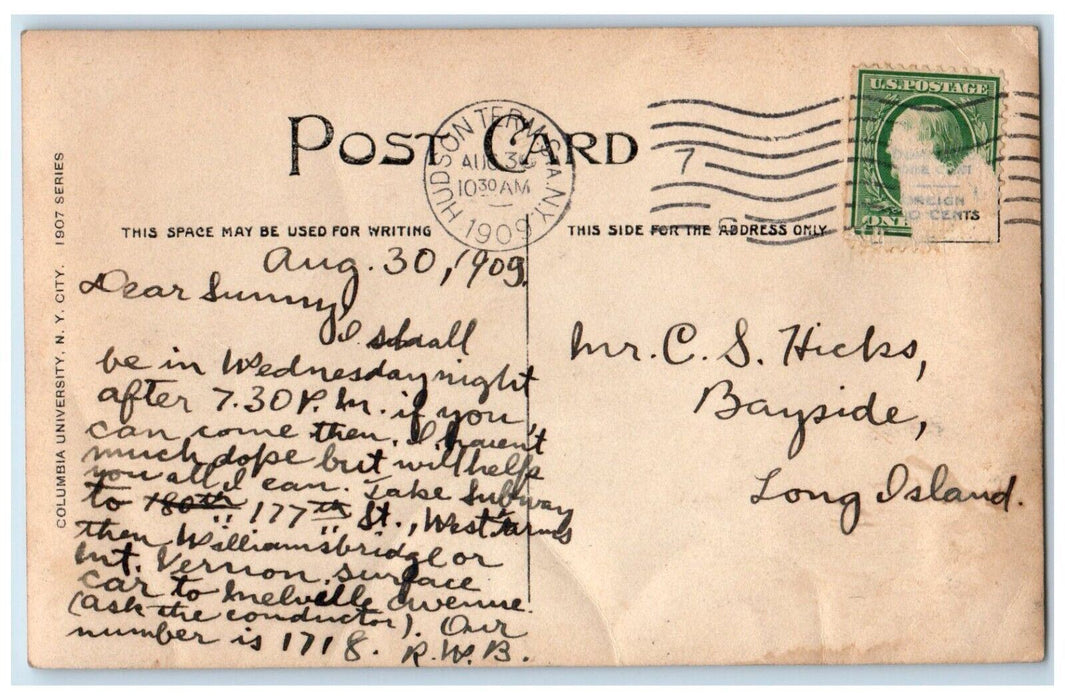 POST CARD
HUDSON TERM. STA. N.Y.
AUG 30
10 30 AM
1909
7
U.S. POSTAGE
ONE
FOREIGN
CENTS
THIS SPACE MAY BE USED FOR WRITING
THIS SIDE FOR THE ADDRESS ONLY
COLUMBIA UNIVERSITY, N. Y. CITY. 1907 SERIES
Aug. 30, 1909.
Dear Sunny,
I shall
be in Wednesday night
after 7.30 P. M. if you
can come then. I haven't
much dope but will help
you all I can. Take Subway
to 180th 177th St., West Farms
then Williamsbridge or
Mt. Vernon surface
car to Melville Avenue.
(ask the conductor). Our
number is 1718. R. W. B.
Mr. C. S. Hicks,
Bayside,
Long Island.